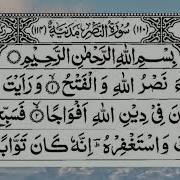 (١١٠) سُوْرَةُ النَّصْرِ مَدَنِيَّةٌ (١١٤)
بِسْمِ اللّٰهِ الرَّحْمٰنِ الرَّحِيْمِ
ءَ نَصْرُ اللّٰهِ وَ الْفَتْحُ ۙ﴿۱﴾ وَ رَاَيْتَ
نَ فِيْ دِيْنِ اللّٰهِ اَفْوَاجًا ۙ﴿۲﴾ فَسَبِّ
وَ اسْتَغْفِرْهُ ؔؕ اِنَّهٗ كَانَ تَوَّابً